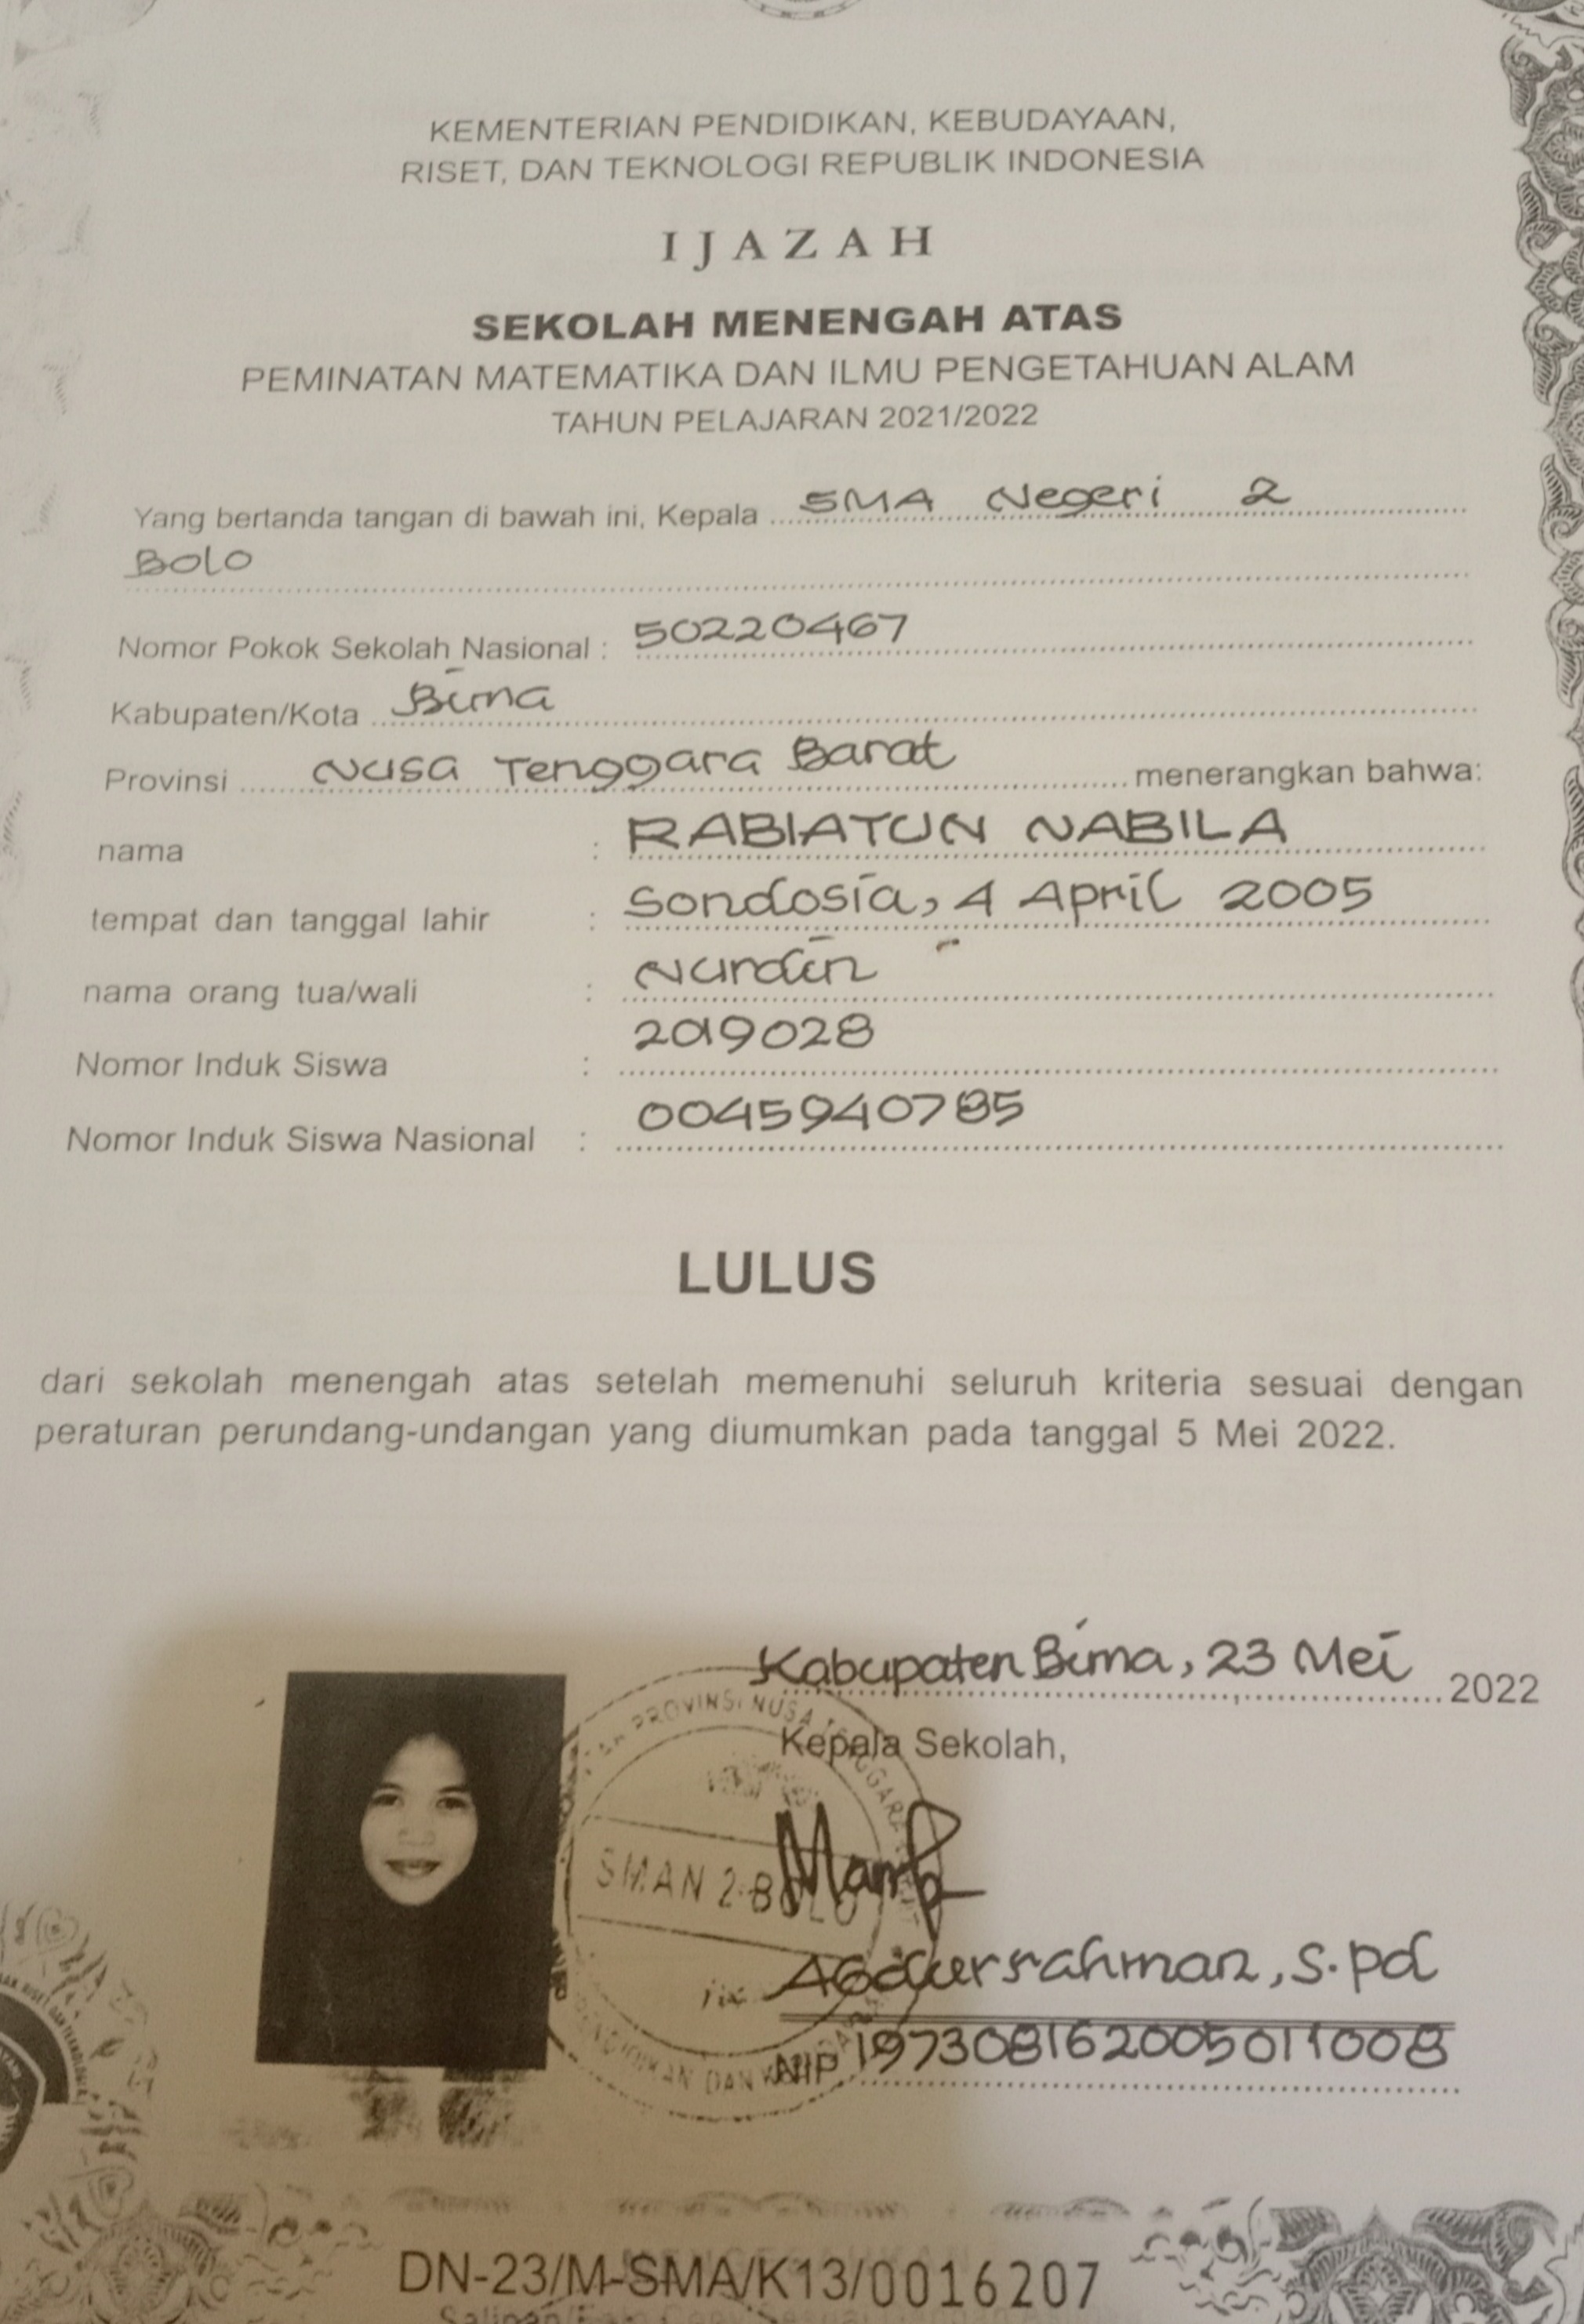 KEMENTERIAN PENDIDIKAN, KEBUDAYAAN,
RISET, DAN TEKNOLOGI REPUBLIK INDONESIA
IJAZAH
SEKOLAH MENENGAH ATAS
PEMINATAN MATEMATIKA DAN ILMU PENGETAHUAN ALAM
TAHUN PELAJARAN 2021/2022
Yang bertanda tangan di bawah ini, Kepala SMA Negeri 2
Bolo
Nomor Pokok Sekolah Nasional : 50220467
Kabupaten/Kota Bima
Provinsi Nusa Tenggara Barat menerangkan bahwa:
nama : RABIATUN NABILA
tempat dan tanggal lahir : Sondosia, 4 April 2005
nama orang tua/wali : Nurdin
Nomor Induk Siswa : 2019028
Nomor Induk Siswa Nasional : 0045940785
LULUS
dari sekolah menengah atas setelah memenuhi seluruh kriteria sesuai dengan
peraturan perundang-undangan yang diumumkan pada tanggal 5 Mei 2022.
Kabupaten Bima, 23 Mei 2022
PROVINSI NUSA TENGGARA
Kepala Sekolah,
SMAN 2 BOLO
Abdurrahman, S.Pd
NIP 197308162005011008
DN-23/M-SMA/K13/0016207